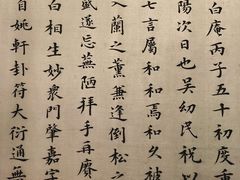 白庵丙子五十初度重
陽次日也吳幼民祝以
七言屬和和焉和久被
入蘭之薰兼逢倒松之
盛遂忘蕪陋拜手再賡
白相生妙衆門肇嘉字
自姚軒卦符大衍通無